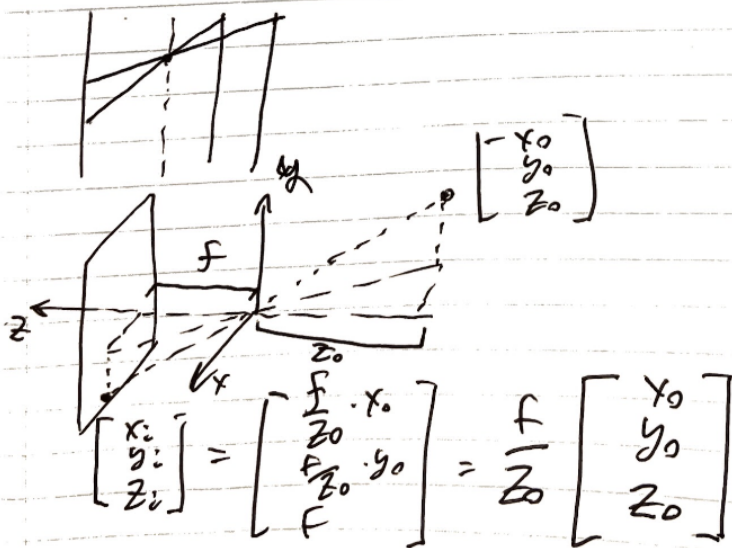 y
[ x₀
y₀
z₀ ]
f
z
z₀
x
[ xᵢ
yᵢ
zᵢ ] = [ f/z₀ · x₀
f/z₀ · y₀
f ] = f/z₀ [ x₀
y₀
z₀ ]